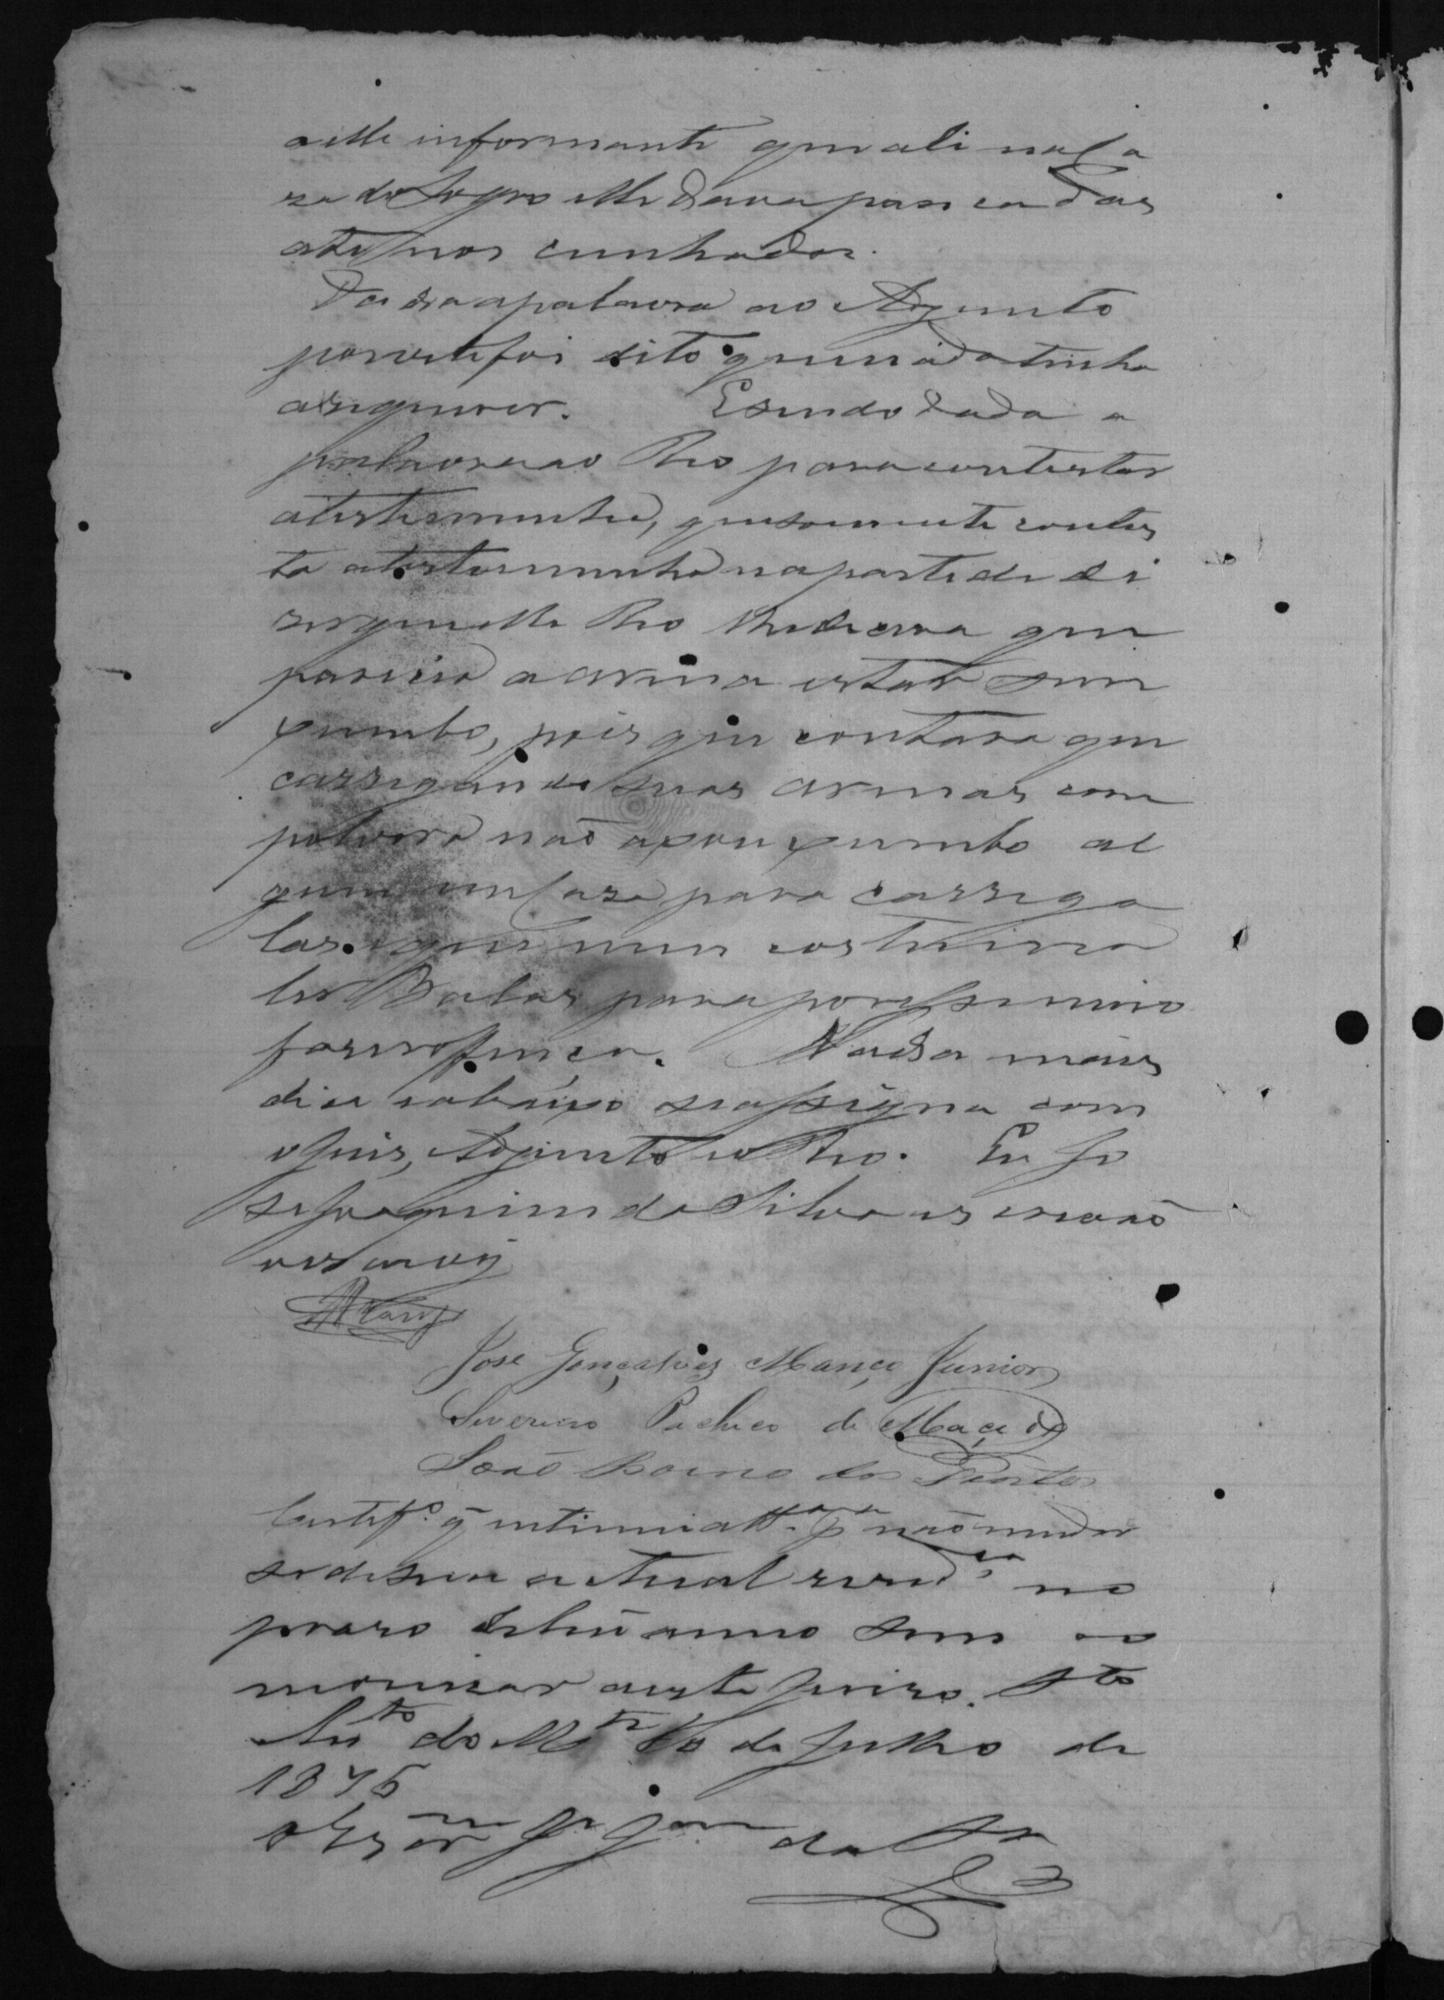 a elle informante que ali na ca
sa do Sogro elle dava pancadas
até nos cunhados.
Dada a palavra ao Adjunto
por este foi dito que nada tinha
a requerer. E sendo dada a
palavra ao Reo para contestar
a testemunha, que somente contes
ta a testemunha na parte de di
ser que elle Reo lhe dicera que
parecia a arma estar sem
xumbo, pois que contara que
carregando suas armas com
polvora não axou xumbo al
gum em casa para carrega
las e que nem costuma
ter Balas para por si mesmo
faser
Nada mais
dice e abaixo se assigna com
o Juis, Adjunto e o Reo. Eu Jo
se Joaquim da Silva escrivaõ
o escrevy
Araujo
José Gonçalves Manço Junior
Severino Pacheco de Macedo
Joaõ Bueno dos Santos
Certif.º q̃ intimei a tt.ª p.ª naõ mudar
se de sua actual resid.ca no
praso de hũ anno sem co
monicar a este Juiso. Sto
Anto do Mte 16 de Julho de
1876
O Escram Je Jqm da Sa